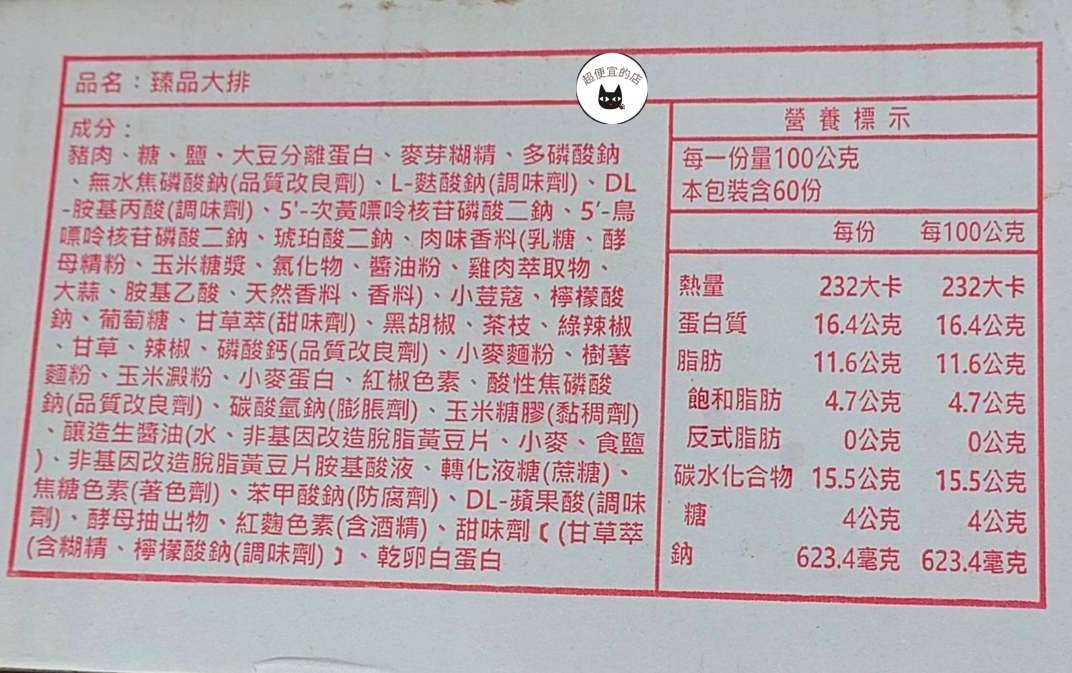 品名：臻品大排
超便宜的店
成分：
豬肉、糖、鹽、大豆分離蛋白、麥芽糊精、多磷酸鈉
、無水焦磷酸鈉(品質改良劑)、L-麩酸鈉(調味劑)、DL
-胺基丙酸(調味劑)、5'-次黃嘌呤核苷磷酸二鈉、5'-鳥
嘌呤核苷磷酸二鈉、琥珀酸二鈉、肉味香料(乳糖、酵
母精粉、玉米糖漿、氯化物、醬油粉、雞肉萃取物、
大蒜、胺基乙酸、天然香料、香料)、小荳蔻、檸檬酸
鈉、葡萄糖、甘草萃(甜味劑)、黑胡椒、茶枝、綠辣椒
、甘草、辣椒、磷酸鈣(品質改良劑)、小麥麵粉、樹薯
麵粉、玉米澱粉、小麥蛋白、紅椒色素、酸性焦磷酸
鈉(品質改良劑)、碳酸氫鈉(膨脹劑)、玉米糖膠(黏稠劑)
、釀造生醬油(水、非基因改造脫脂黃豆片、小麥、食鹽
)、非基因改造脫脂黃豆片胺基酸液、轉化液糖(蔗糖)、
焦糖色素(著色劑)、苯甲酸鈉(防腐劑)、DL-蘋果酸(調味
劑)、酵母抽出物、紅麴色素(含酒精)、甜味劑〔(甘草萃
(含糊精、檸檬酸鈉(調味劑)〕、乾卵白蛋白
營養標示
每一份量100公克
本包裝含60份
每份 每100公克
熱量 232大卡 232大卡
蛋白質 16.4公克 16.4公克
脂肪 11.6公克 11.6公克
飽和脂肪 4.7公克 4.7公克
反式脂肪 0公克 0公克
碳水化合物 15.5公克 15.5公克
糖 4公克 4公克
鈉 623.4毫克 623.4毫克